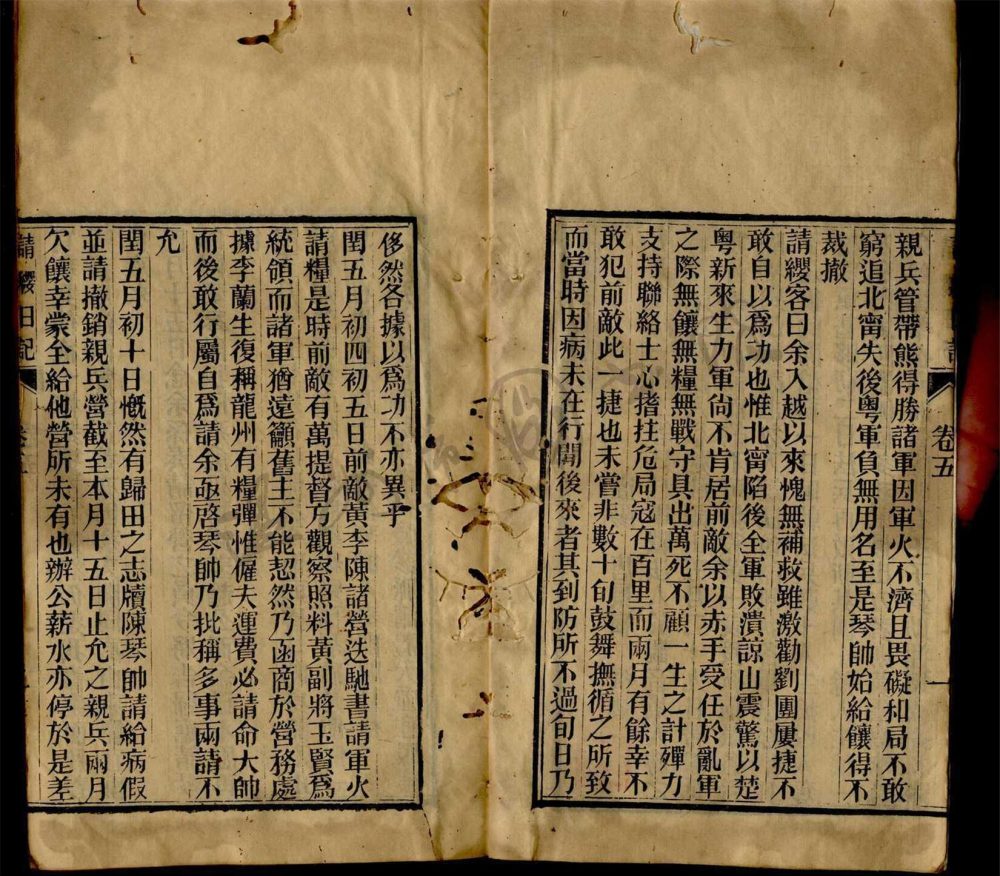 親兵管帶熊得勝諸軍因軍火不濟且畏礙和局不敢
窮追北甯失後粵軍負無用名至是琴帥始給饟得不
裁撤
請纓客曰余入越以來愧無補救雖激勸劉團屢捷不
敢自以為功也惟北甯陷後全軍敗潰諒山震驚以楚
粵新來生力軍尙不肯居前敵余以赤手受任於亂軍
之際無饟無糧無戰守具出萬死不顧一生之計殫力
支持聯絡士心搘拄危局寇在百里而兩月有餘幸不
敢犯前敵此一捷也未嘗非數十旬鼓舞撫循之所致
而當時因病未在行閒後來者其到防所不過旬日乃
卷五
侈然各據以為功不亦異乎
閏五月初四初五日前敵黃李陳諸營迭馳書請軍火
請糧是時前敵有萬提督方觀察照料黃副將玉賢為
統領而諸軍猶遠籲舊主不能恝然乃函商於營務處
據李蘭生復稱龍州有糧彈惟僱夫運費必請命大帥
而後敢行屬自為請余亟啓琴帥乃批稱多事兩請不
允
閏五月初十日慨然有歸田之志牘陳琴帥請給病假
並請撤銷親兵營截至本月十五日止允之親兵兩月
欠饟幸蒙全給他營所未有也辦公薪水亦停於是差
請纓日記